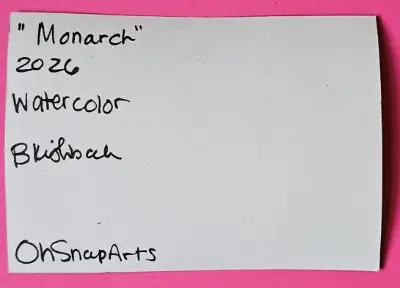 "Monarch"
2026
Watercolor
OhSnapArts